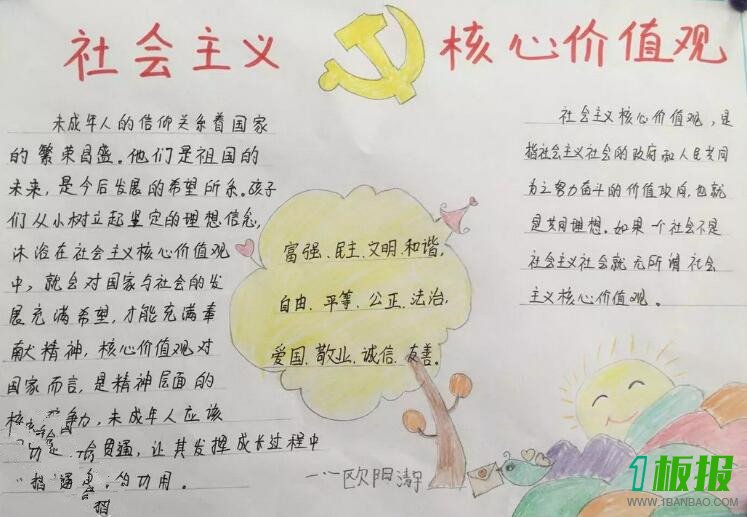 社会主义 核心价值观
未成年人的信仰关系着国家
的繁荣昌盛。他们是祖国的
未来，是今后发展的希望所系。孩子
们从小树立起坚定的理想信念，
沐浴在社会主义核心价值观
中，就会对国家与社会的发
展充满希望，才能充满奉
献精神，核心价值观对
国家而言，是精神层面的
争力，未成年人应该
贯通，让其发挥成长过程中
的功用。
富强、民主、文明、和谐，
自由、平等、公正、法治，
爱国、敬业、诚信、友善。
社会主义核心价值观，是
指社会主义社会的政府和人民共同
为之努力奋斗的价值攻间，也就
是共同理想。如果一个社会不是
社会主义社会就无所谓社会
主义核心价值观。
欧阳
1板报
WWW.1BANBAO.COM